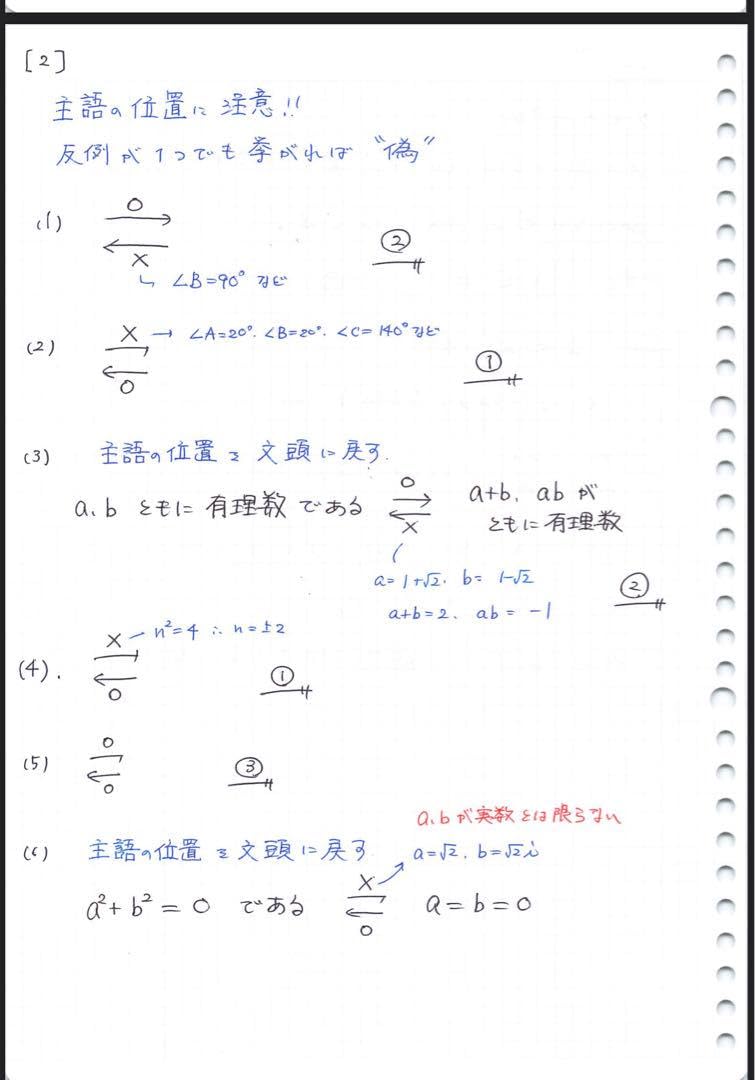 [2]
主語の位置に注意!!
反例が1つでも挙がれば"偽"
(1) ○ → ← × ②
↳ ∠B=90° など
(2) × → ∠A=20°. ∠B=20°. ∠C=140° など
→ ← ○ ①
(3) 主語の位置を文頭に戻す.
a、b ともに有理数である ○ → ← × a+b、ab が
ともに有理数
a=1+√2、b=1-√2
a+b=2、ab=-1 ②
(4). × n²=4 ∴ n=±2
→ ← ○ ①
(5) ○ → ← ○ ③
a、bが実数とは限らない
(6) 主語の位置を文頭に戻す a=√2、b=√2i
a²+b²=0 である × → ← ○ a=b=0